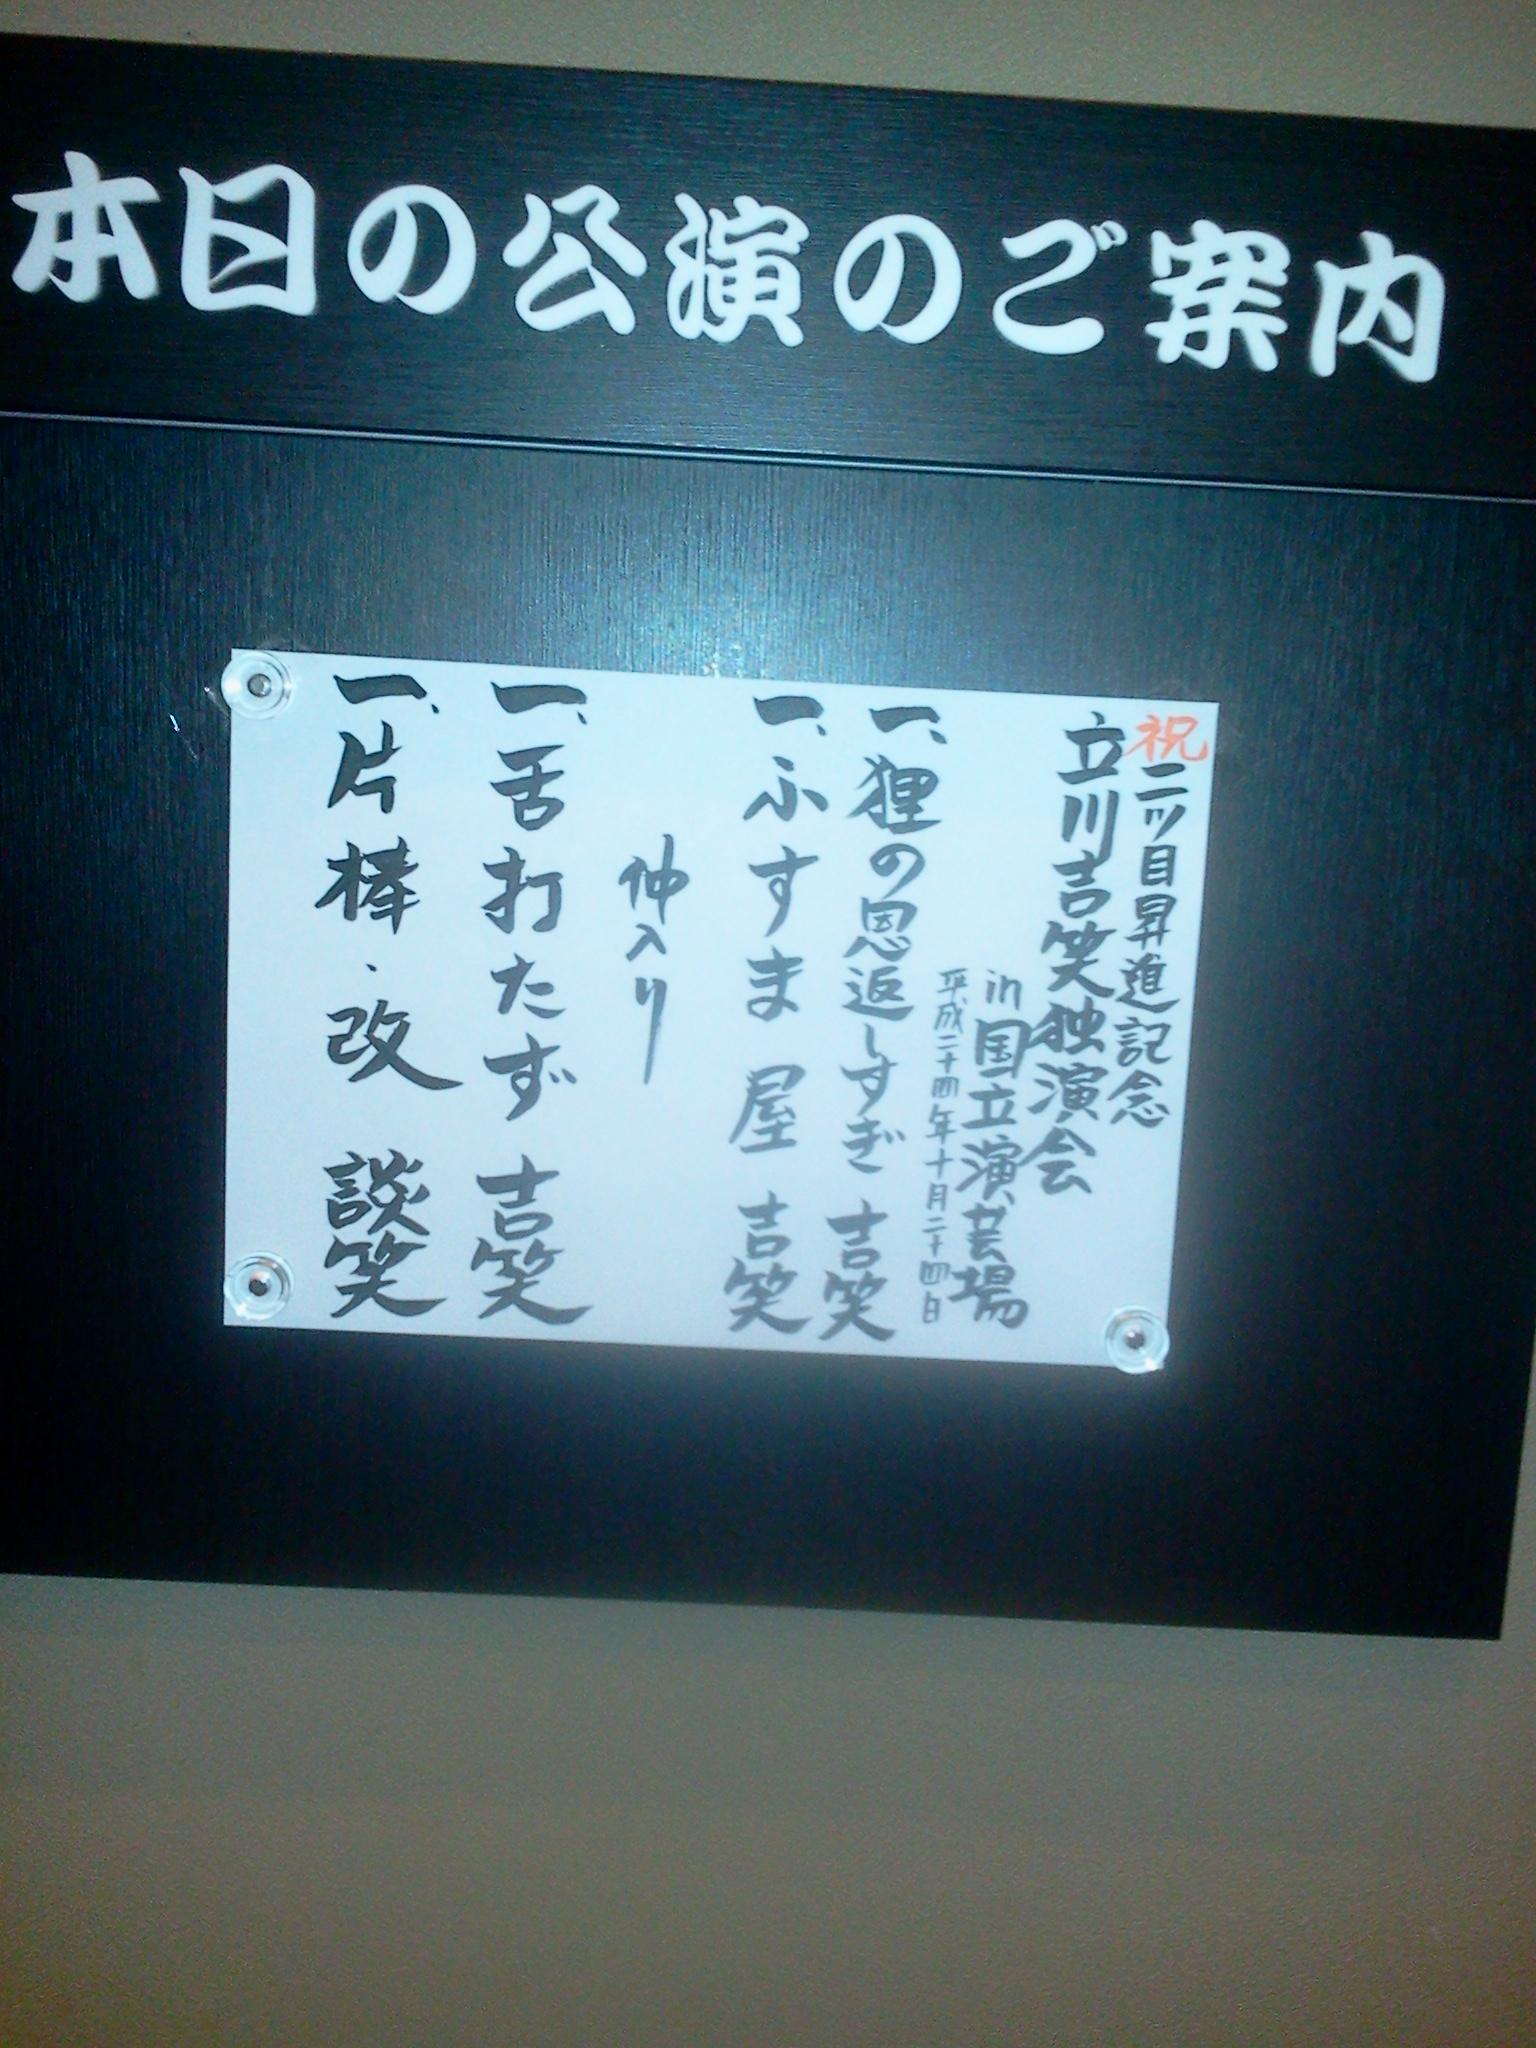 本日の公演のご案内
祝二ツ目昇進記念
立川吉笑独演会
in国立演芸場
平成二十四年十月二十四日
一、狸の恩返しすぎ 吉笑
一、ふすま屋 吉笑
仲入り
一、舌打たず 吉笑
一、片棒・改 談笑